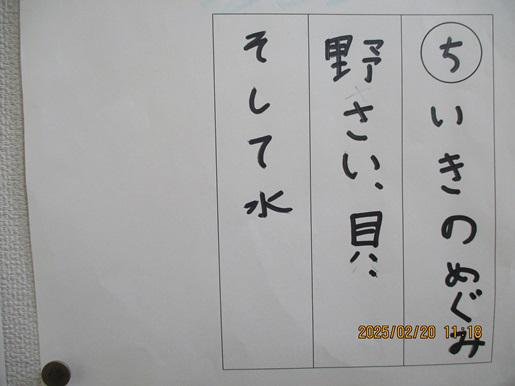 ちいきのめぐみ
野さい、貝、
そして水
2025/02/20 11:18